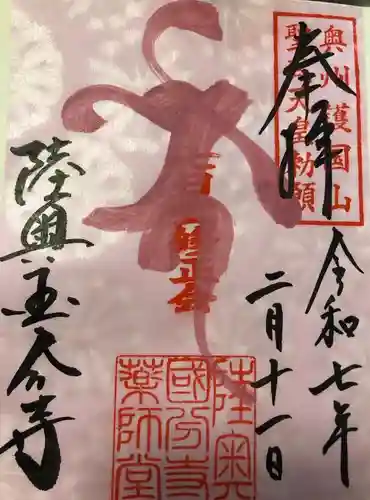 奉拝
奥州護国山
聖武天皇勅願
令和七年
二月十一日
陸奥国分寺薬師堂
陸奥国分寺